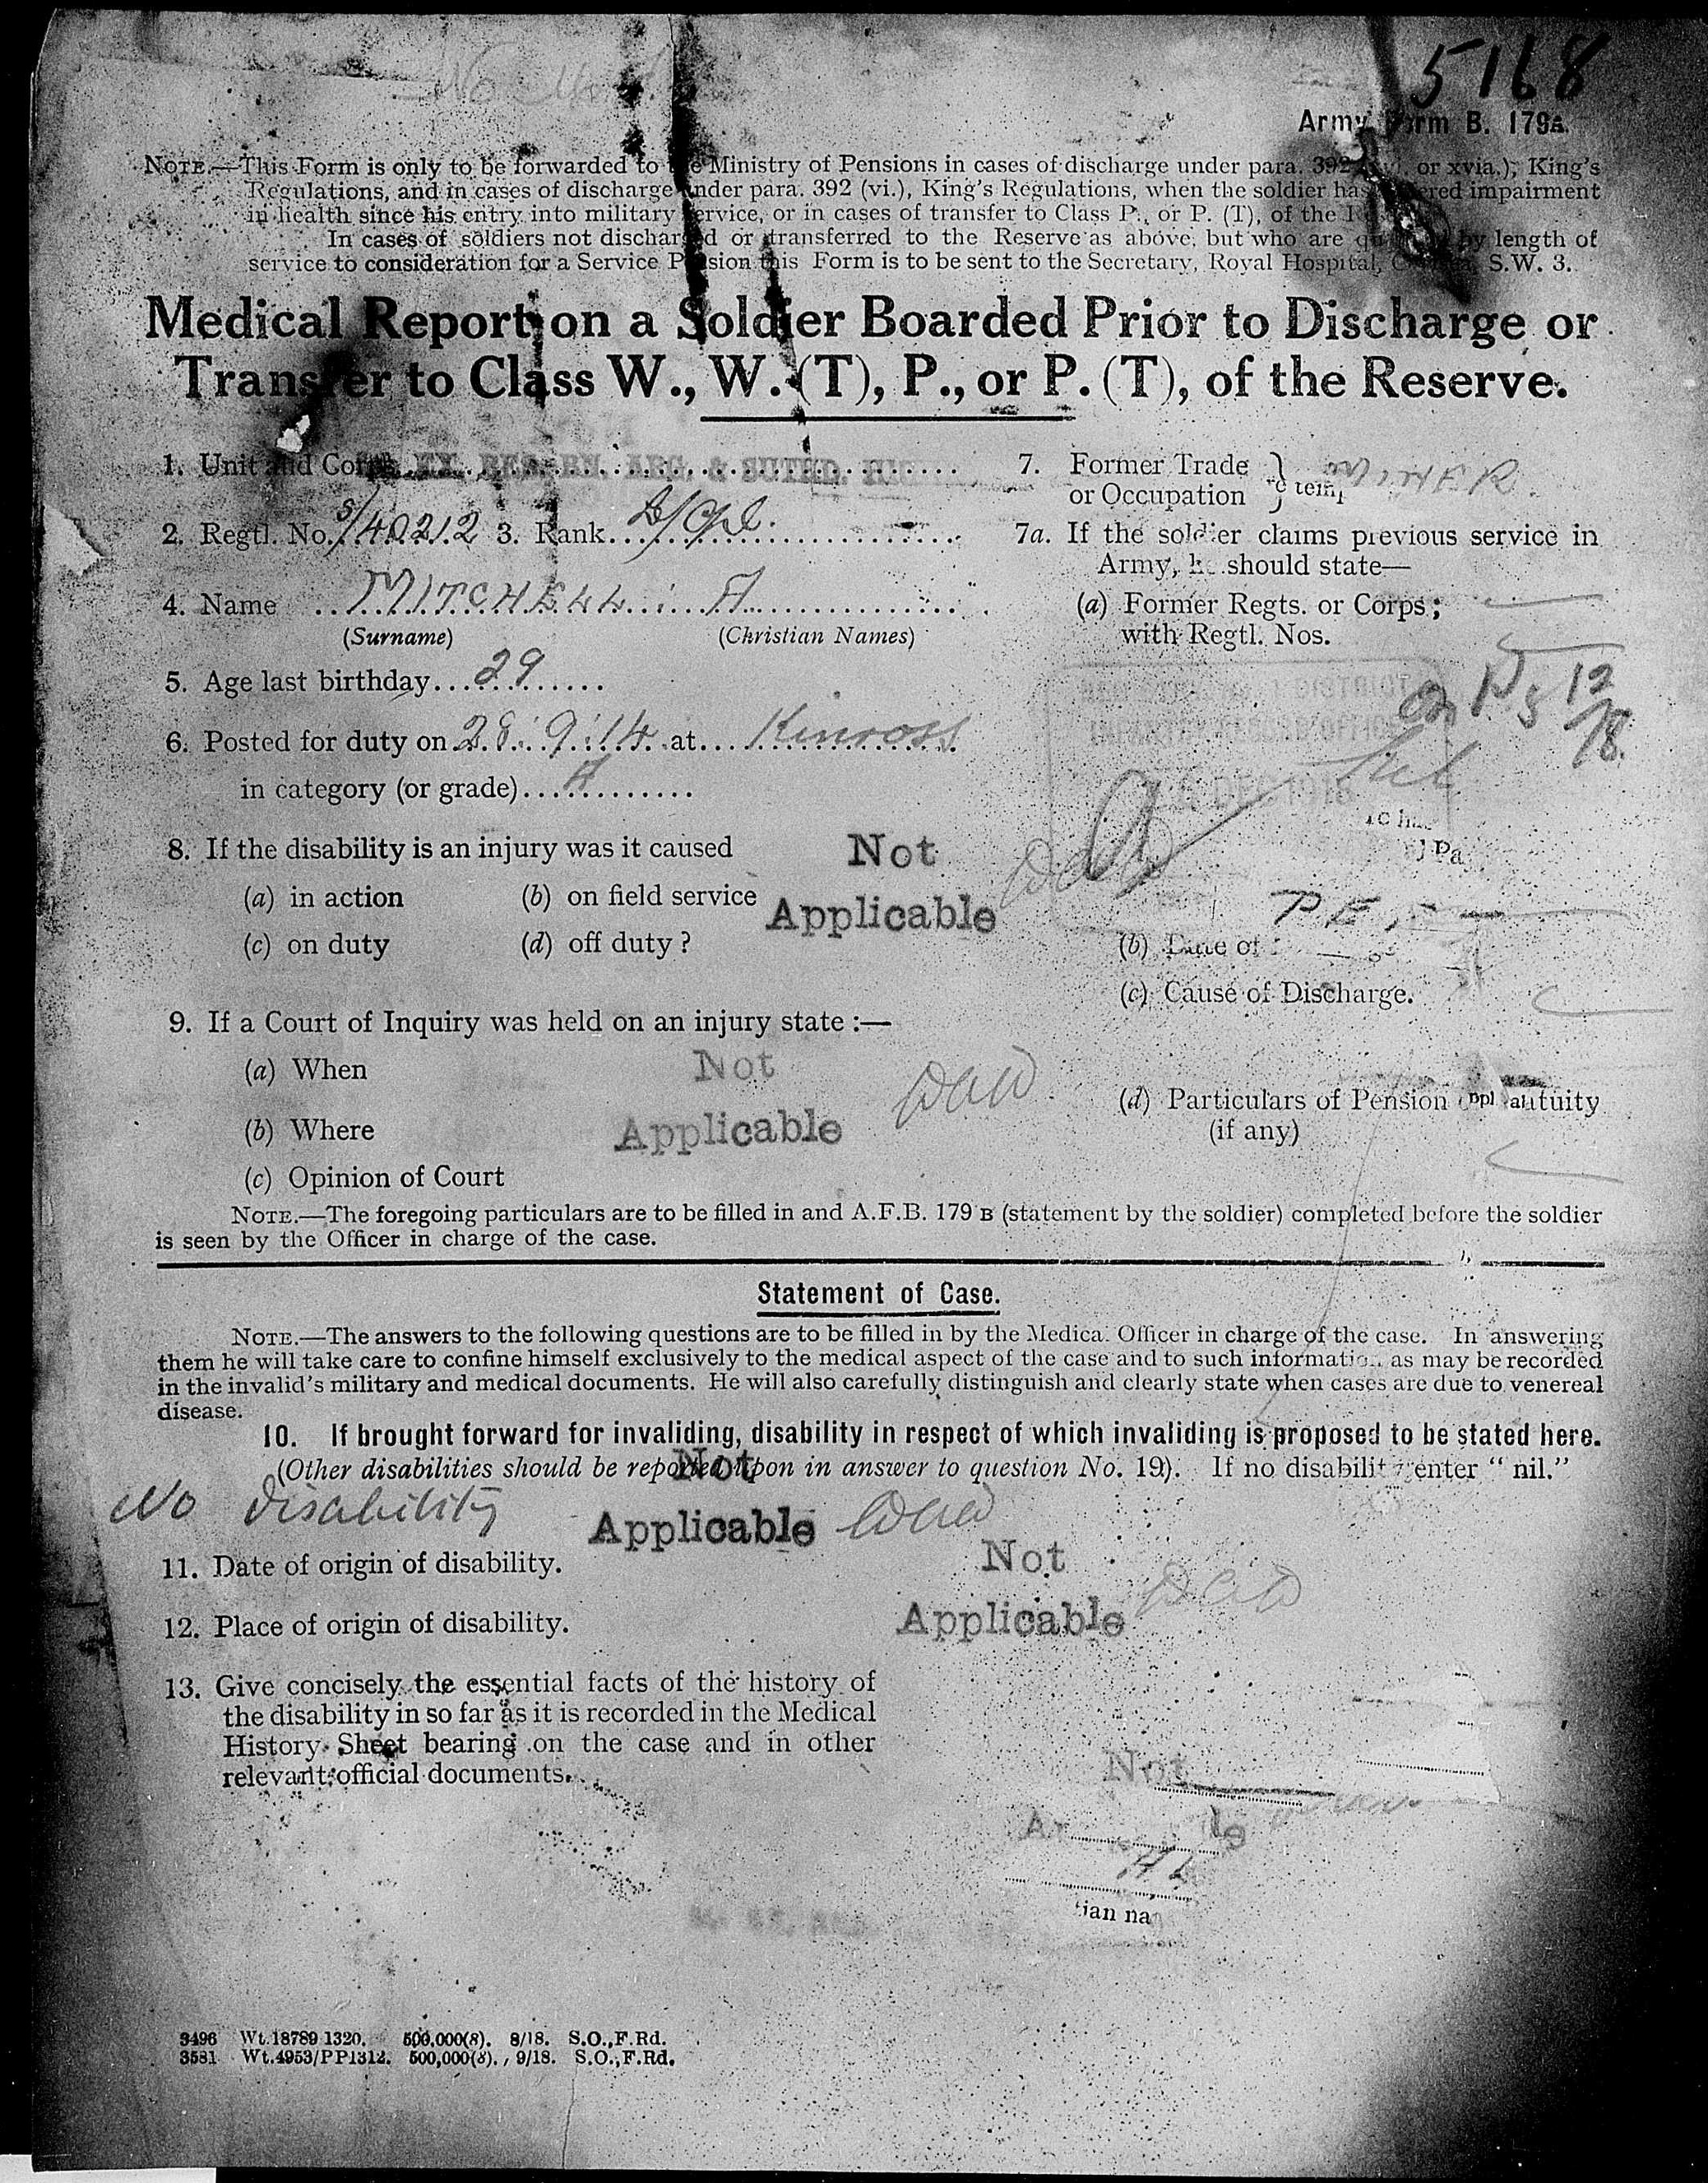 5168
Army Form B. 179A.
NOTE.—This Form is only to be forwarded to the Ministry of Pensions in cases of discharge under para. 392 or xvia.), King's
Regulations, and in cases of discharge under para. 392 (vi.), King's Regulations, when the soldier has impairment
in health since his entry into military service, or in cases of transfer to Class P., or P. (T), of the
In cases of soldiers not discharged or transferred to the Reserve as above, but who are by length of
service to consideration for a Service Pension this Form is to be sent to the Secretary, Royal Hospital, S.W. 3.
Medical Report on a Soldier Boarded Prior to Discharge or
Transfer to Class W., W. (T), P., or P. (T), of the Reserve.
1. Unit and Corps RES. BN. ARG. & SUTHD.
2. Regtl. No. S/40212 3. Rank L/Cpl.
4. Name MITCHELL A
(Surname) (Christian Names)
5. Age last birthday 29
6. Posted for duty on 28.9.14 at Kinross
in category (or grade) A
7. Former Trade or Occupation MINER.
7a. If the soldier claims previous service in
Army, he should state—
(a) Former Regts. or Corps;
with Regtl. Nos.
12
18.
8. If the disability is an injury was it caused
(a) in action (b) on field service
(c) on duty (d) off duty?
Not
Applicable
(b) Date of
(c) Cause of Discharge.
9. If a Court of Inquiry was held on an injury state :—
(a) When
(b) Where
(c) Opinion of Court
Not
Applicable
(d) Particulars of Pension
(if any)
NOTE.—The foregoing particulars are to be filled in and A.F.B. 179 B (statement by the soldier) completed before the soldier
is seen by the Officer in charge of the case.
Statement of Case.
NOTE.—The answers to the following questions are to be filled in by the Medical Officer in charge of the case. In answering
them he will take care to confine himself exclusively to the medical aspect of the case and to such information as may be recorded
in the invalid's military and medical documents. He will also carefully distinguish and clearly state when cases are due to venereal
disease.
10. If brought forward for invaliding, disability in respect of which invaliding is proposed to be stated here.
(Other disabilities should be reported upon in answer to question No. 19). If no disability enter "nil."
No disability
Not
Applicable
11. Date of origin of disability.
12. Place of origin of disability.
Not
Applicable
13. Give concisely the essential facts of the history of
the disability in so far as it is recorded in the Medical
History Sheet bearing on the case and in other
relevant official documents.
Not
3496 Wt.18789 1320. 500,000(8). 8/18. S.O.,F.Rd.
3581 Wt.4953/PP1312. 500,000(8). 9/18. S.O.,F.Rd.